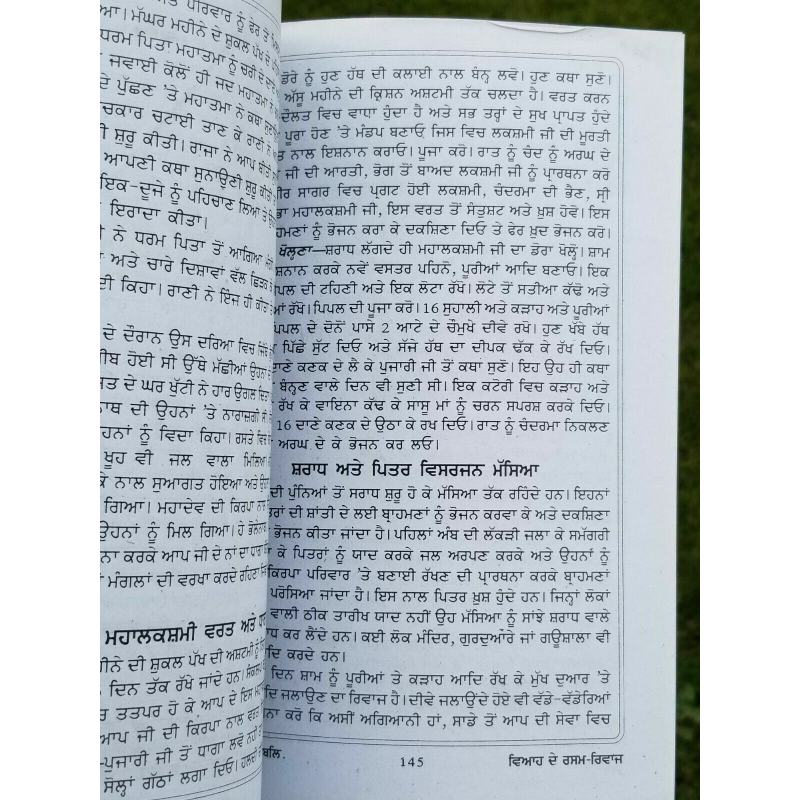 ਪਰਿਵਾਰ ਨੂੰ ਫੇਰ ਤੋਂ
ਮੱਘਰ ਮਹੀਨੇ ਦੇ ਸ਼ੁਕਲ ਪੱਖ ਦੇ
ਧਰਮ ਪਿਤਾ ਮਹਾਤਮਾ ਨੂੰ ਚਰੀ ਦੇ
ਜਵਾਈ ਕੋਲੋਂ ਹੀ ਜਦ ਮਹਾਤਮਾ ਨੇ
ਦੇ ਪੁੱਛਣ 'ਤੇ ਮਹਾਤਮਾ ਨੇ ਕਥਾ
ਚਟਾਈ ਤਾਣ ਕੇ ਰਾਣੀ ਨੇ
ਸ਼ੁਰੂ ਕੀਤੀ। ਰਾਜਾ ਨੇ ਆਪ ਬੀਤੀ
ਆਪਣੀ ਕਥਾ ਸੁਨਾਉਣੀ ਸ਼ੁਰੂ ਕੀਤੀ
ਇਕ-ਦੂਜੇ ਨੂੰ ਪਹਿਚਾਣ ਲਿਆ ਤੇ
ਇਰਾਦਾ ਕੀਤਾ।
ਨੇ ਧਰਮ ਪਿਤਾ ਤੋਂ ਆਗਿਆ
ਅਤੇ ਚਾਰੇ ਦਿਸ਼ਾਵਾਂ ਵੱਲ ਛਿੜਕ
ਦੀ ਕਿਹਾ। ਰਾਣੀ ਨੇ ਇੰਜ ਹੀ ਕੀਤਾ
ਦੇ ਦੌਰਾਨ ਉਸ ਦਰਿਆ ਵਿਚ ਜਿੱਥੇ
ਹੋਈ ਸੀ ਉੱਥੇ ਮੱਛੀਆਂ ਉਹਨਾਂ
ਦੇ ਘਰ ਖੁੱਟੀ ਨੇ ਹਾਰ ਉਗਲ ਦਿਤਾ
ਦੀ ਉਹਨਾਂ 'ਤੇ ਨਾਰਾਜ਼ਗੀ
ਨੂੰ ਵਿਦਾ ਕਿਹਾ। ਰਸਤੇ ਵਿਚ
ਖੂਹ ਵੀ ਜਲ ਵਾਲਾ ਮਿਲਿਆ
ਕੇ ਨਾਲ ਸੁਆਗਤ ਹੋਇਆ ਅਤੇ
ਗਿਆ। ਮਹਾਦੇਵ ਦੀ ਕਿਰਪਾ ਨਾਲ
ਉਹਨਾਂ ਨੂੰ ਮਿਲ ਗਿਆ। ਹੇ ਭੋਲੇਨਾਥ
ਕਰਕੇ ਆਪ ਜੀ ਦੇ ਨਾਂ ਦਾ ਧਾਗਾ
ਮੰਗਲਾਂ ਦੀ ਵਰਖਾ ਕਰਦੇ ਰਹਿਣਾ
ਮਹਾਲਕਸ਼ਮੀ ਵਰਤ ਅਤੇ
ਦੀ ਸ਼ੁਕਲ ਪੱਖ ਦੀ ਅਸ਼ਟਮੀ ਨੂੰ
ਦਿਨ ਤੱਕ ਰੱਖੇ ਜਾਂਦੇ ਹਨ।
ਤਤਪਰ ਹੋ ਕੇ ਆਪ ਦੇ ਇਸ
ਆਪ ਜੀ ਦੀ ਕਿਰਪਾ ਨਾਲ ਵਰਤ
ਪੁਜਾਰੀ ਜੀ ਤੋਂ ਧਾਗਾ ਲਵੋ
ਸੋਲ੍ਹਾਂ ਗੱਠਾਂ ਲਗਾ ਦਿਓ। ਹਲਦੀ
ਡੋਰੇ ਨੂੰ ਹੁਣ ਹੱਥ ਦੀ ਕਲਾਈ ਨਾਲ ਬੰਨ੍ਹ ਲਵੋ। ਹੁਣ ਕਥਾ ਸੁਣੋ।
ਅੱਸੂ ਮਹੀਨੇ ਦੀ ਕ੍ਰਿਸ਼ਨ ਅਸ਼ਟਮੀ ਤੱਕ ਚਲਦਾ ਹੈ। ਵਰਤ ਕਰਨ
ਦੌਲਤ ਵਿਚ ਵਾਧਾ ਹੁੰਦਾ ਹੈ ਅਤੇ ਸਭ ਤਰ੍ਹਾਂ ਦੇ ਸੁਖ ਪ੍ਰਾਪਤ ਹੁੰਦੇ
ਪੂਰਾ ਹੋਣ 'ਤੇ ਮੰਡਪ ਬਣਾਓ ਜਿਸ ਵਿਚ ਲਕਸ਼ਮੀ ਜੀ ਦੀ ਮੂਰਤੀ
ਨਾਲ ਇਸ਼ਨਾਨ ਕਰਾਓ। ਪੂਜਾ ਕਰੋ। ਰਾਤ ਨੂੰ ਚੰਦ ਨੂੰ ਅਰਘ ਦੇ
ਜੀ ਦੀ ਆਰਤੀ, ਭੋਗ ਤੋਂ ਬਾਅਦ ਲਕਸ਼ਮੀ ਜੀ ਨੂੰ ਪ੍ਰਾਰਥਨਾ ਕਰੋ
ਸਾਗਰ ਵਿਚ ਪ੍ਰਗਟ ਹੋਈ ਲਕਸ਼ਮੀ, ਚੰਦਰਮਾ ਦੀ ਭੈਣ, ਸ੍ਰੀ
ਮਹਾਲਕਸ਼ਮੀ ਜੀ, ਇਸ ਵਰਤ ਤੋਂ ਸੰਤੁਸ਼ਟ ਅਤੇ ਖੁਸ਼ ਹੋਵੋ। ਇਸ
ਹਮਣਾਂ ਨੂੰ ਭੋਜਨ ਕਰਾ ਕੇ ਦਕਸ਼ਿਣਾ ਦਿਓ ਤੇ ਫੇਰ ਖ਼ੁਦ ਭੋਜਨ ਕਰੋ।
ਖੋਲ੍ਹਣਾ—ਸ਼ਰਾਧ ਲੱਗਦੇ ਹੀ ਮਹਾਲਕਸ਼ਮੀ ਜੀ ਦਾ ਡੋਰਾ ਖੋਲ੍ਹੋ। ਸ਼ਾਮ
ਸ਼ਨਾਨ ਕਰਕੇ ਨਵੇਂ ਵਸਤਰ ਪਹਿਨੋ, ਪੂਰੀਆਂ ਆਦਿ ਬਣਾਓ। ਇਕ
ਪਲ ਦੀ ਟਹਿਣੀ ਅਤੇ ਇਕ ਲੋਟਾ ਰੱਖੋ। ਲੋਟੇ ਤੋਂ ਸਤੀਆ ਕੱਢੋ ਅਤੇ
ਆਂ ਰੱਖੋ। ਪਿਪਲ ਦੀ ਪੂਜਾ ਕਰੋ। 16 ਸੁਹਾਲੀ ਅਤੇ ਕੜਾਹ ਅਤੇ ਪੂਰੀਆਂ
ਪਿਪਲ ਦੇ ਦੋਨੋਂ ਪਾਸੇ 2 ਆਟੇ ਦੇ ਚੌਮੁਖੇ ਦੀਵੇ ਰਖੋ। ਹੁਣ ਖੱਬੇ ਹੱਥ
ਪਿੱਛੇ ਸੁੱਟ ਦਿਓ ਅਤੇ ਸੱਜੇ ਹੱਥ ਦਾ ਦੀਪਕ ਢੱਕ ਕੇ ਰੱਖ ਦਿਓ।
ਦਾਣੇ ਕਣਕ ਦੇ ਲੈ ਕੇ ਪੁਜਾਰੀ ਜੀ ਤੋਂ ਕਥਾ ਸੁਣੋ। ਇਹ ਉਹ ਹੀ ਕਥਾ
ਬੰਨ੍ਹਣ ਵਾਲੇ ਦਿਨ ਵੀ ਸੁਣੀ ਸੀ। ਇਕ ਕਟੋਰੀ ਵਿਚ ਕੜਾਹ ਅਤੇ
ਰੱਖ ਕੇ ਵਾਇਨਾ ਕੱਢ ਕੇ ਸਾਸੂ ਮਾਂ ਨੂੰ ਚਰਨ ਸਪਰਸ਼ ਕਰਕੇ ਦਿਓ।
16 ਦਾਣੇ ਕਣਕ ਦੇ ਉਠਾ ਕੇ ਰਖ ਦਿਓ। ਰਾਤ ਨੂੰ ਚੰਦਰਮਾ ਨਿਕਲਣ
ਅਰਘ ਦੇ ਕੇ ਭੋਜਨ ਕਰ ਲਓ।
ਸ਼ਰਾਧ ਅਤੇ ਪਿਤਰ ਵਿਸਰਜਨ ਮੱਸਿਆ
ਦੀ ਪੁੰਨਿਆਂ ਤੋਂ ਸਰਾਧ ਸ਼ੁਰੂ ਹੋ ਕੇ ਮੱਸਿਆ ਤੱਕ ਰਹਿੰਦੇ ਹਨ। ਇਹਨਾਂ
ਰਾਂ ਦੀ ਸ਼ਾਂਤੀ ਦੇ ਲਈ ਬ੍ਰਾਹਮਣਾਂ ਨੂੰ ਭੋਜਨ ਕਰਵਾ ਕੇ ਅਤੇ ਦਕਸ਼ਿਣਾ
ਭੋਜਨ ਕੀਤਾ ਜਾਂਦਾ ਹੈ। ਪਹਿਲਾਂ ਅੰਬ ਦੀ ਲੱਕੜੀ ਜਲਾ ਕੇ ਸਮੱਗਰੀ
ਕੇ ਪਿਤਰਾਂ ਨੂੰ ਯਾਦ ਕਰਕੇ ਜਲ ਅਰਪਣ ਕਰਕੇ ਅਤੇ ਉਹਨਾਂ ਨੂੰ
ਕਿਰਪਾ ਪਰਿਵਾਰ 'ਤੇ ਬਣਾਈ ਰੱਖਣ ਦੀ ਪ੍ਰਾਰਥਨਾ ਕਰਕੇ ਬ੍ਰਾਹਮਣਾਂ
ਪਰੋਸਿਆ ਜਾਂਦਾ ਹੈ। ਇਸ ਨਾਲ ਪਿਤਰ ਖ਼ੁਸ਼ ਹੁੰਦੇ ਹਨ। ਜਿਨ੍ਹਾਂ ਲੋਕਾਂ
ਵਾਲੀ ਠੀਕ ਤਾਰੀਖ ਯਾਦ ਨਹੀਂ ਉਹ ਮੱਸਿਆ ਨੂੰ ਸਾਂਝੇ ਸ਼ਰਾਧ ਵਾਲੇ
ਧ ਕਰ ਲੈਂਦੇ ਹਨ। ਕਈ ਲੋਕ ਮੰਦਿਰ, ਗੁਰਦੁਆਰੇ ਜਾਂ ਗਊਸ਼ਾਲਾ ਵੀ
ਦਿ ਕਰਦੇ ਹਨ।
ਦਿਨ ਸ਼ਾਮ ਨੂੰ ਪੂਰੀਆਂ ਤੇ ਕੜਾਹ ਆਦਿ ਰੱਖ ਕੇ ਮੁੱਖ ਦੁਆਰ 'ਤੇ
ਦਿ ਜਲਾਉਣ ਦਾ ਰਿਵਾਜ ਹੈ। ਦੀਵੇ ਜਲਾਉਂਦੇ ਹੋਏ ਵੀ ਵੱਡੇ-ਵਡੇਰਿਆਂ
ਨਾ ਕਰੋ ਕਿ ਅਸੀਂ ਅਗਿਆਨੀ ਹਾਂ, ਸਾਡੇ ਤੋਂ ਆਪ ਦੀ ਸੇਵਾ ਵਿਚ
ਬਲਿ. 145 ਵਿਆਹ ਦੇ ਰਸਮ-ਰਿਵਾਜ